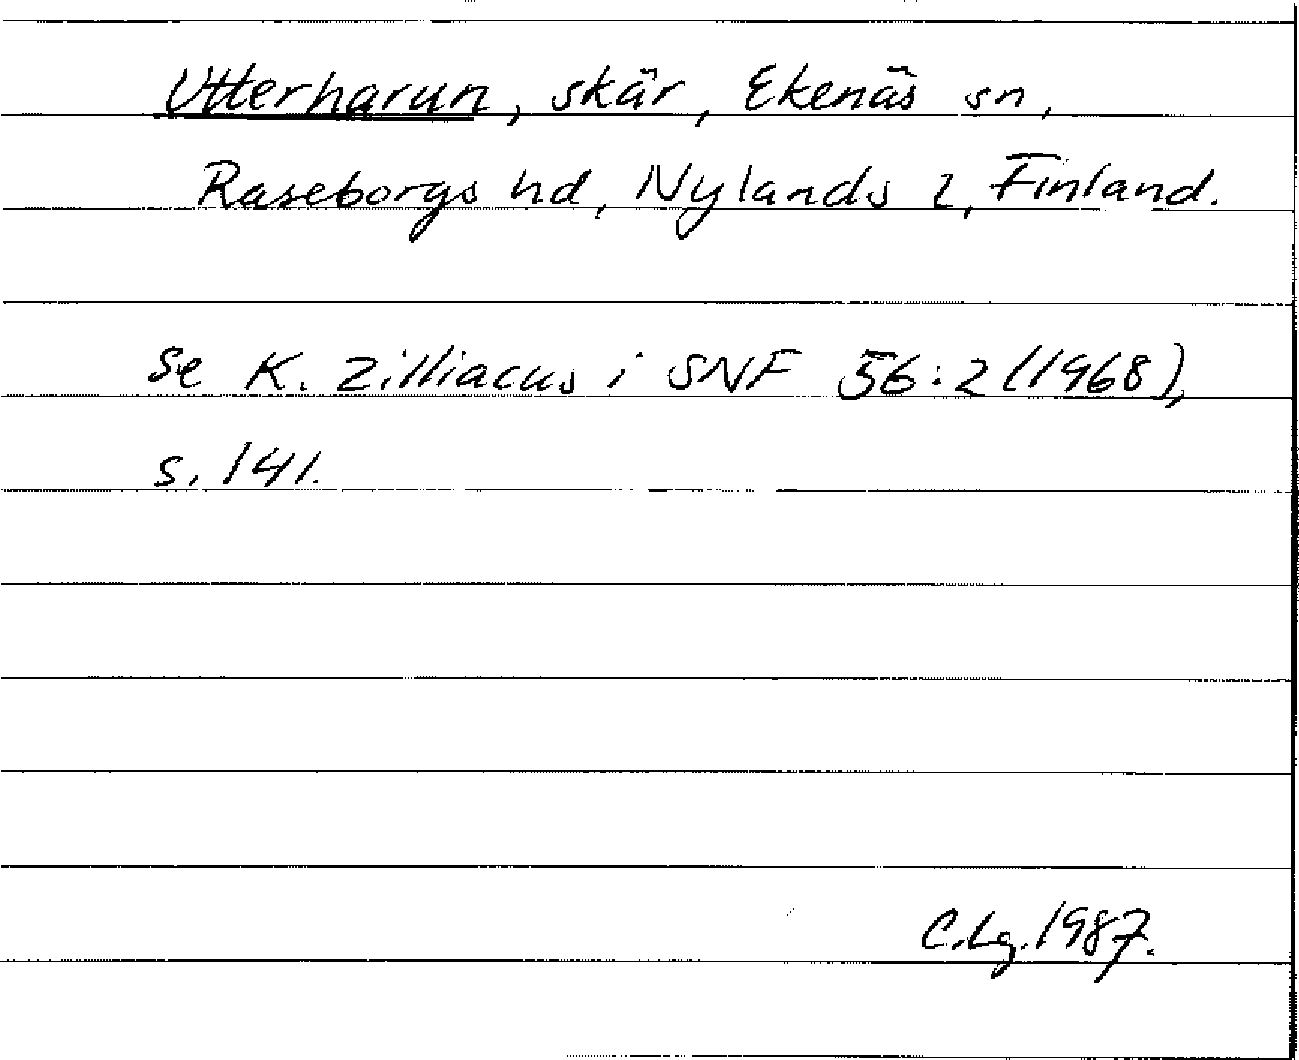 Utterharun, skär, Ekenäs sn,
Raseborgs hd, Nylands l, Finland.
Se K. Zilliacus i SNF 56:2 (1968),
s. 141.
C.Lg. 1987.